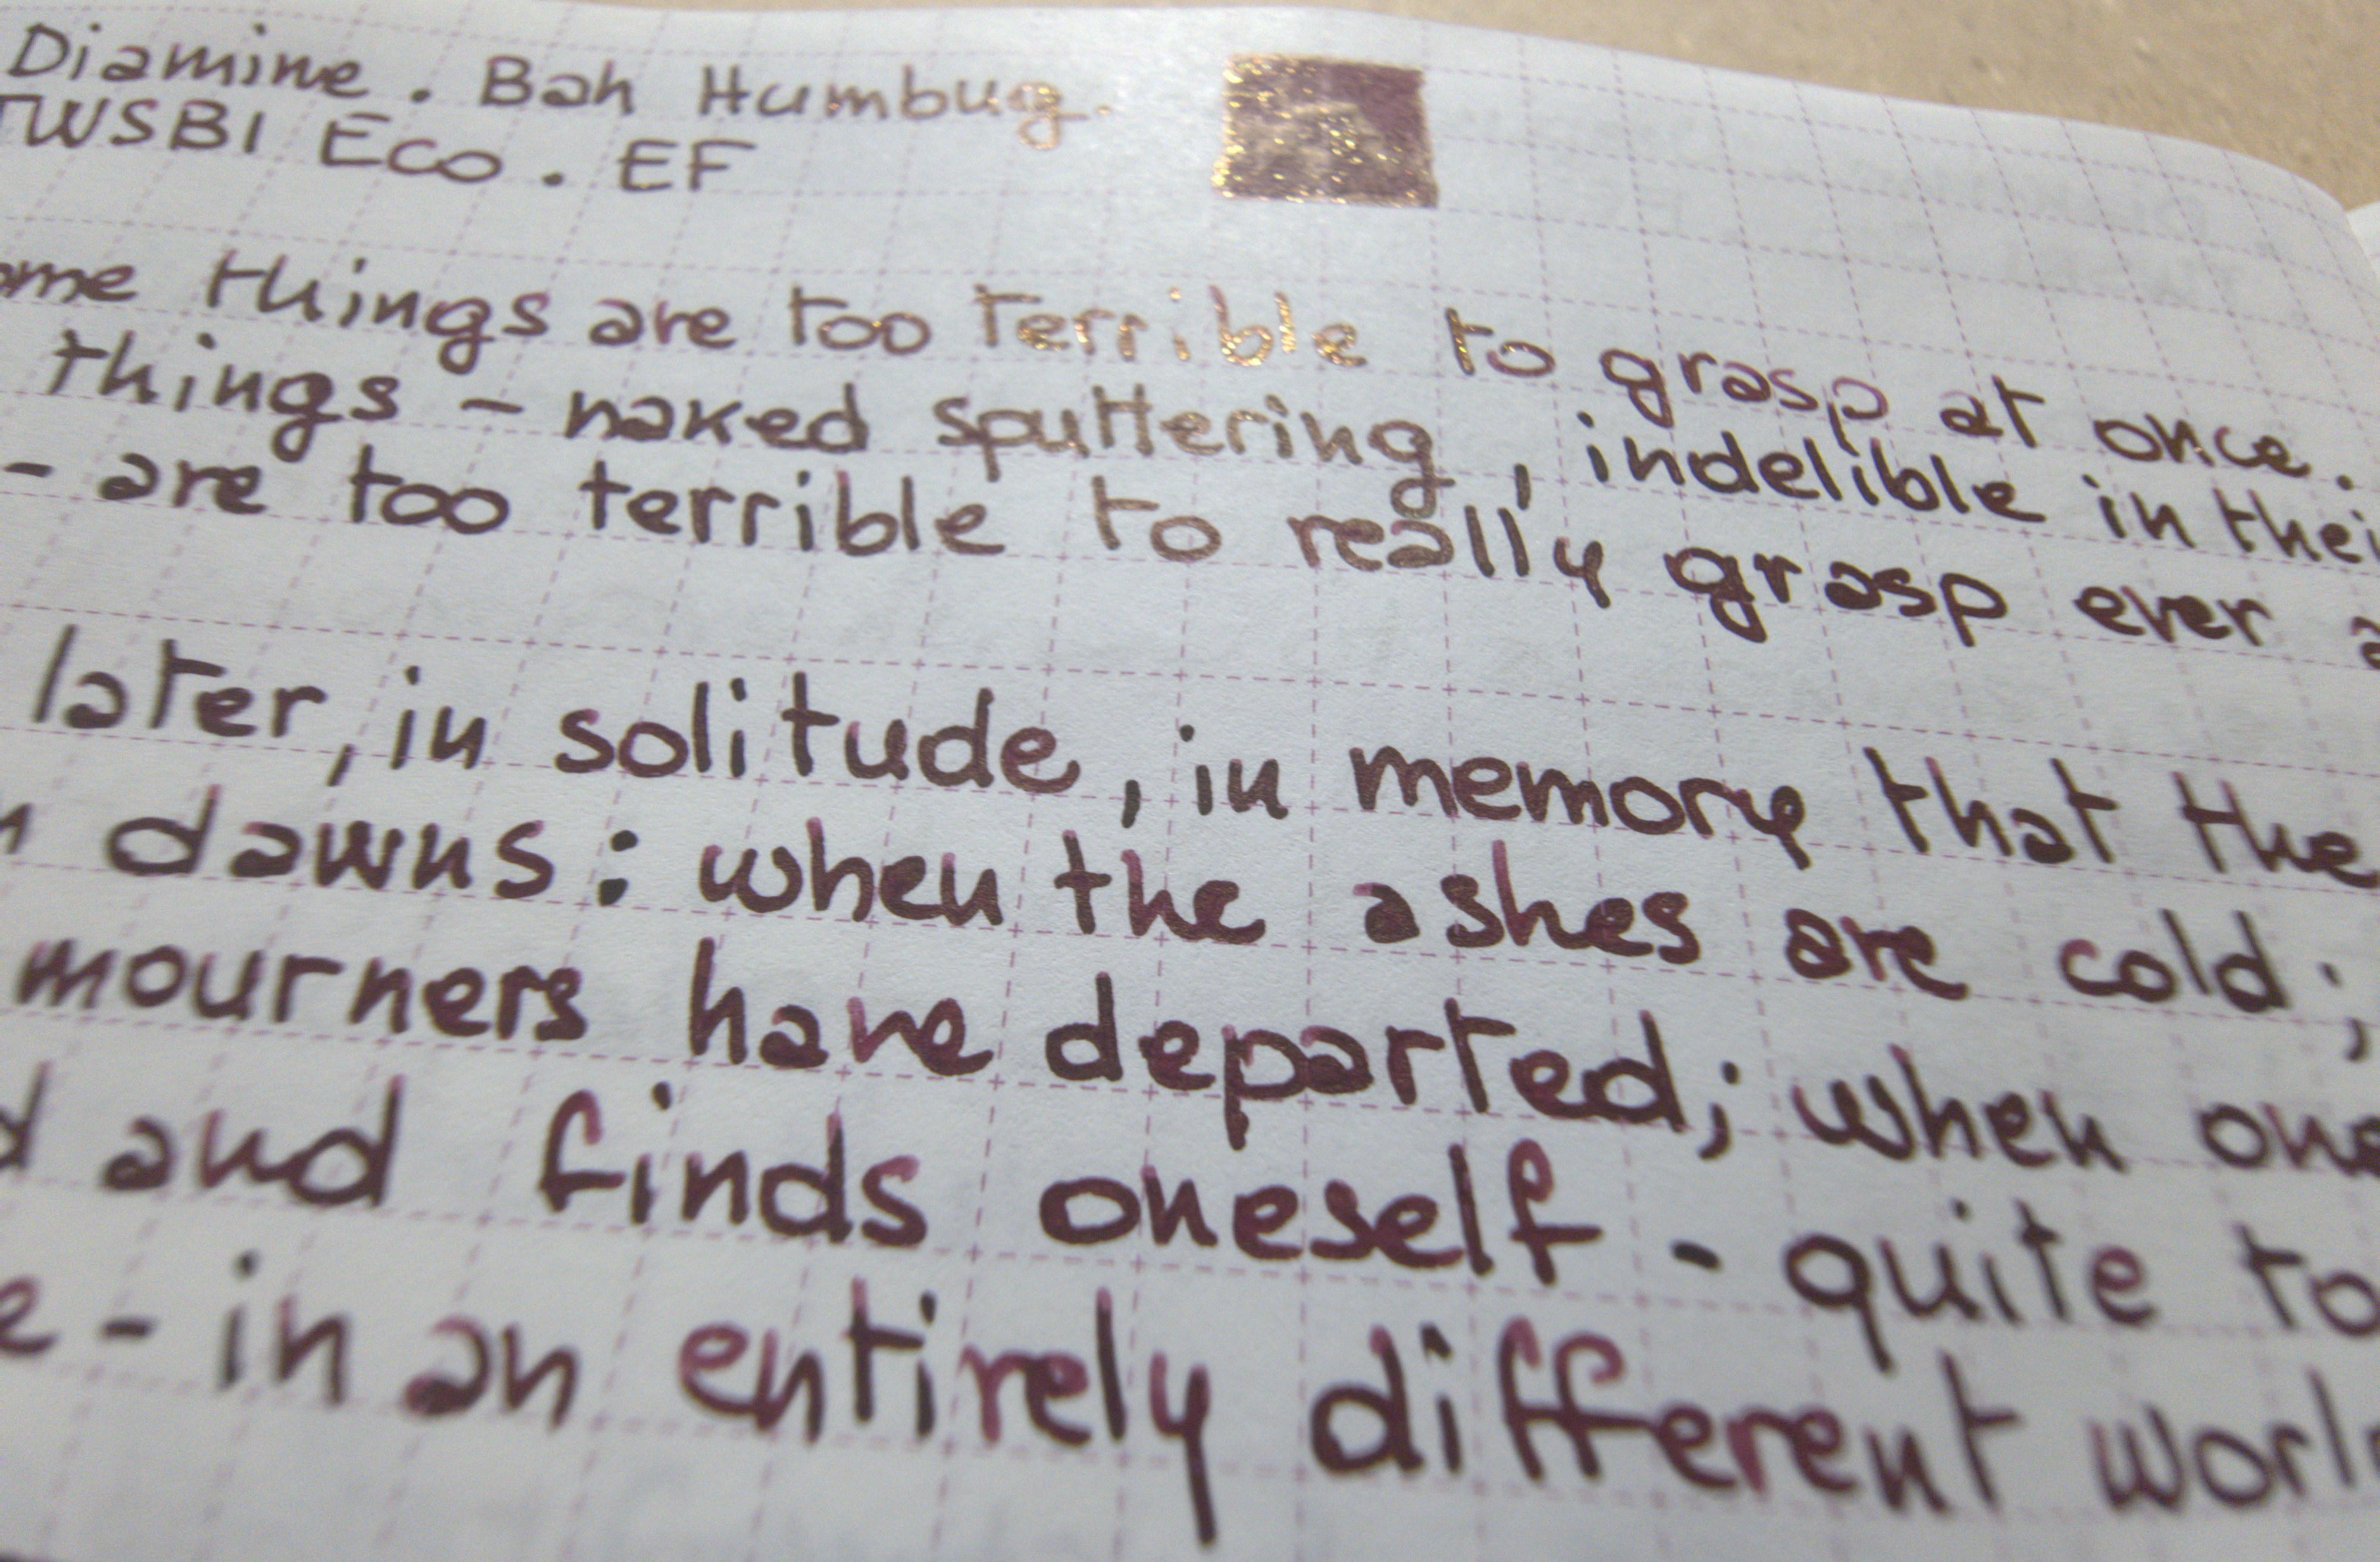 Diamine. Bah Humbug.
TWSBI Eco. EF
ome things are too terrible to grasp at once.
things - naked sputtering, indelible in thei
- are too terrible to really grasp ever a
later, in solitude, in memory that the
n dawns: when the ashes are cold;
mourners have departed; when one
d and finds oneself - quite to
e - in an entirely different worl